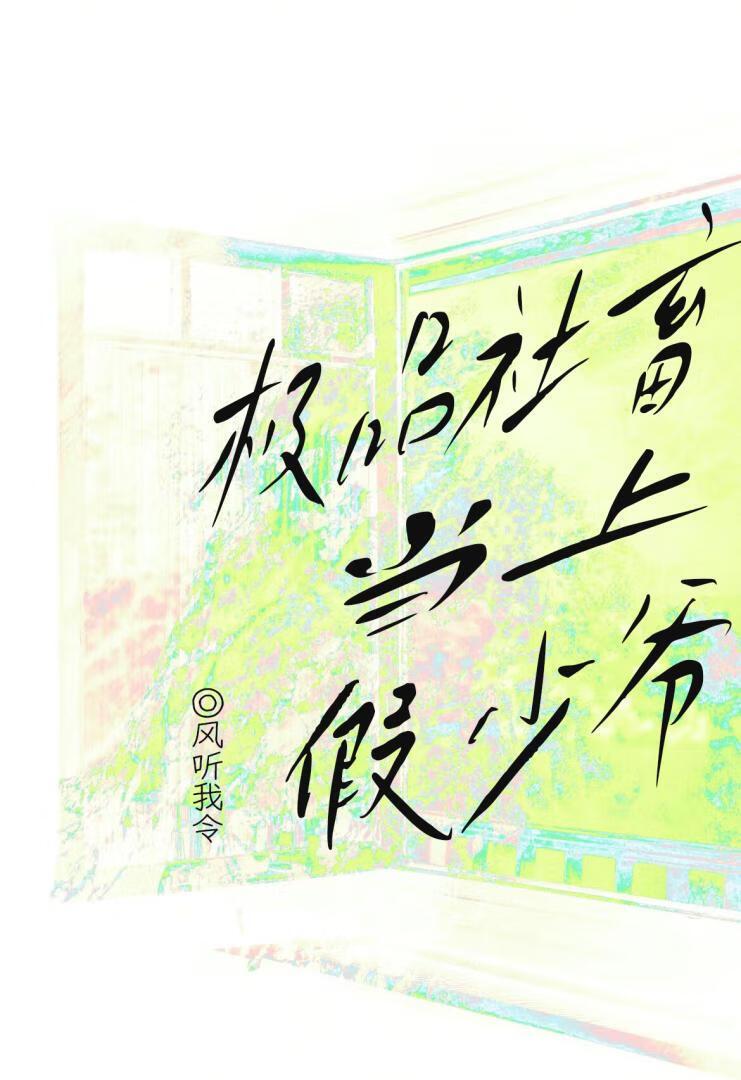 极品社畜
当上
假少爷
◎风听我令